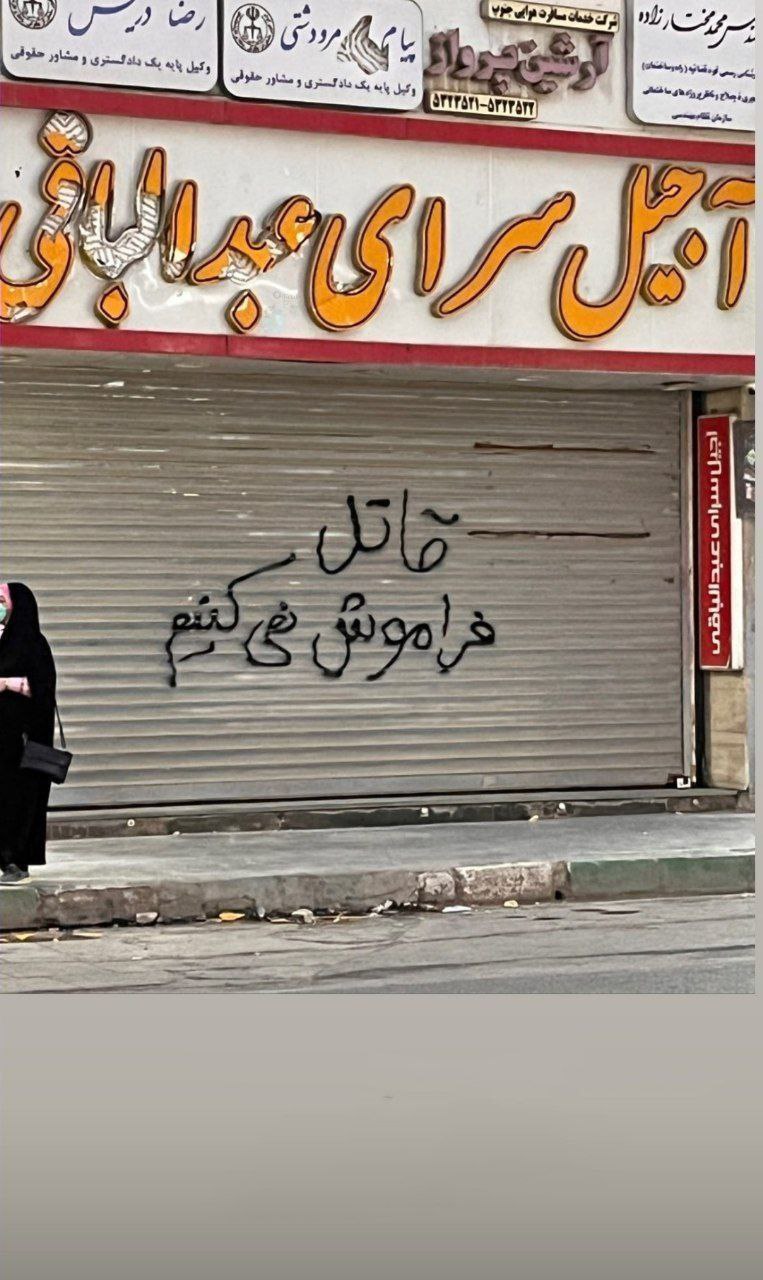 رضا دریس
وکیل پایه یک دادگستری و مشاور حقوقی
پیام مرودشتی
وکیل پایه یک دادگستری و مشاور حقوقی
شرکت خدمات مسافرت هوایی جنوب
آرشین پرواز
۵۳۲۳۵۲۱-۵۳۲۳۵۲۲
محمد مختارزاده
سازمان نظام مهندسی
آجیل سرای عبدالباقی
آجیل سرای عبدالباقی
قاتل
فراموش نمی کنیم